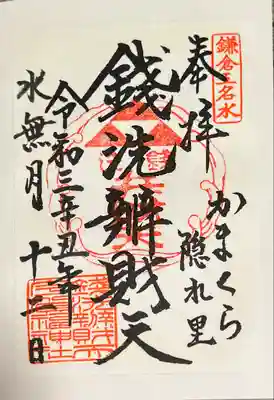 鎌倉五名水
奉拝
かまくら
隠れ里
銭洗辧財天
令和三辛丑年
水無月
十二日